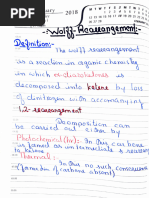 2018
-:Wolff-Rearrangement:-
Definition:-
The wolff rearrangement
is a reaction in organic chemistry
in which α-diazoketones is
decomposed into ketene by loss
of dinitrogen with accompanying
1,2-rearrangement
Decomposition can
be carried out either by
Photochemical (hν): In this carbene
is formed as immediate & rearr
Thermal:
In this no such concerted